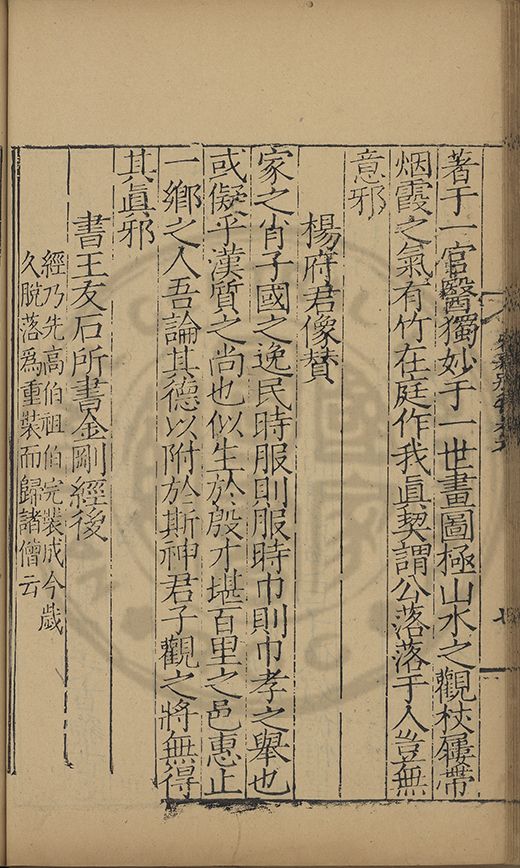 著于一官醫獨妙于一世畫圖極山水之觀杖屨帶
烟霞之氣有竹在庭作我眞契謂公落落于人豈無
意邪
楊府君像賛
家之肖子國之逸民時服則服時巾則巾孝之舉也
或儗乎漢質之尚也似生於殷才堪百里之邑惠止
一鄉之人吾論其德以附於斯神君子觀之將無得
其眞邪
書王友石所書金剛經後
經乃先高伯祖伯完裝成今歲
久脫落爲重裝而歸諸僧云